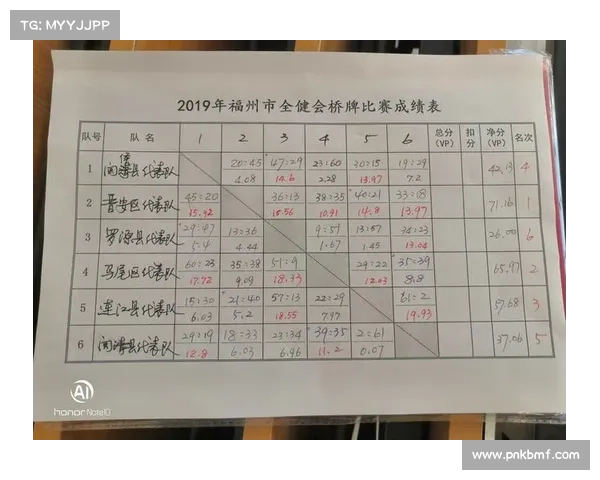 TG: MYYJJPP
2019年福州市全健会桥牌比赛成绩表
队号 队名 1 2 3 4 5 6 总分(VP) 扣分 净分(VP) 名次
20:45 47:29 23:60 30:15 19:29
1 闽侯县代表队 4.08 14.6 2.28 13.97 7.2 42.13 4
45:20 36:13 38:35 40:21 33:18
2 晋安区代表队 15.92 15.56 10.91 14.8 13.97 71.16 1
29:47 13:36 9:51 13:57 34:23
3 罗源县代表队 5.4 4.44 1.67 1.45 13.04 26.00 6
60:23 35:38 51:9 29:22 35:39
4 马尾区代表队 17.72 9.09 18.33 12.03 8.8 65.97 2
15:30 21:40 57:13 22:29 61:2
5 连江县代表队 6.03 5.2 18.55 7.97 19.93 57.68 3
29:19 18:33 23:34 39:35 2:61
6 闽清县代表队 12.8 6.03 6.96 11.2 0.07 37.06 5
AI
honor Note10
www.pnkbmf.com